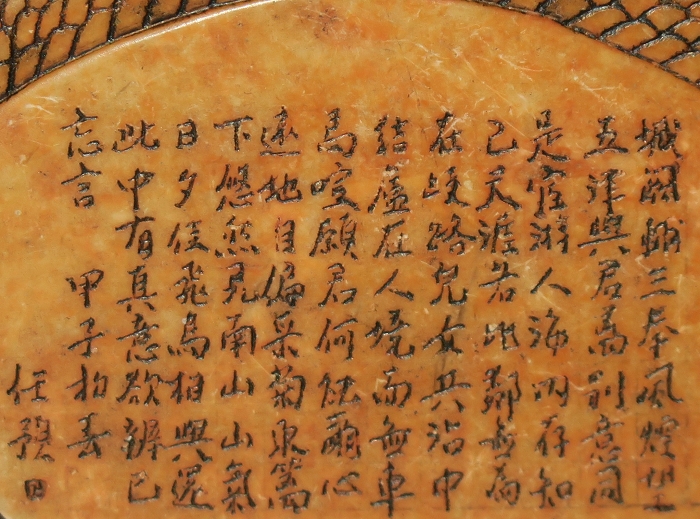 城闕輔三秦風煙望
五津與君離別意同
是宦游人海內存知
己天涯若比鄰無為
在歧路兒女共沾巾
結廬在人境而無車
馬喧願君何能爾心
遠地自偏采菊東籬
下悠然見南山山氣
日夕佳飛鳥相與還
此中有真意欲辨已
忘言 甲子初春
任預日